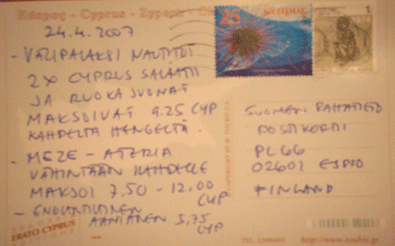 Κύπρος - Cyprus - Zypern -
24.4.2007
- VÄLIPALAKSI NAUTITUT
2 X CYPRUS SALAATTI
JA RUOKAJUOMAT
MAKSOIVAT 9.25 CYP
KAHDELTA HENGELTÄ.
- MEZE - ATERIA
VÄHINTÄÄN KAHDELLE
MAKSOI 7.50 - 12.00
CYP
- ENGLANTILAINEN
AAMIAINEN 3,75
CYP
25
1
SUOMEN
POSTIKORTTI
PL 66
02601 ESPOO
FINLAND
ERATO CYPRUS